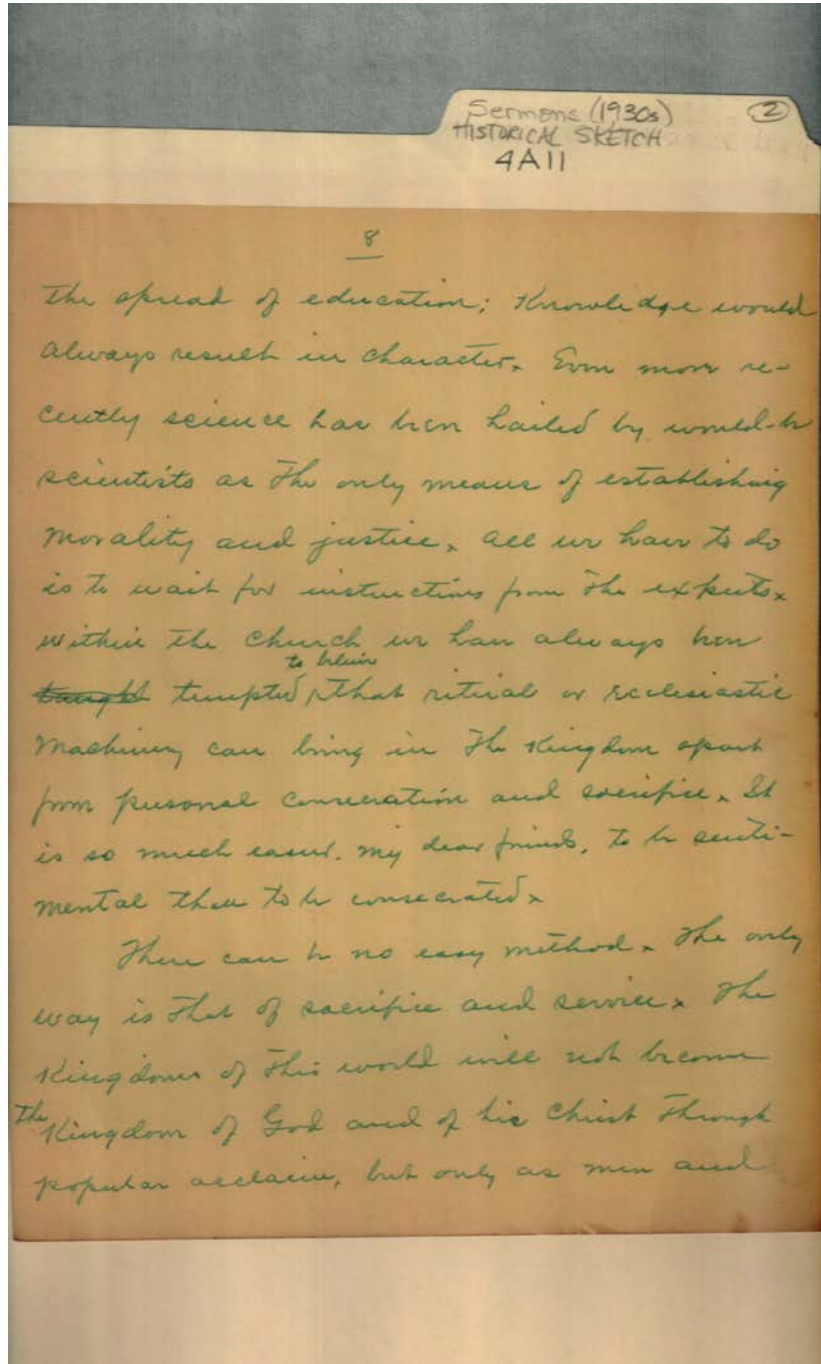 Sermons (1930s) 2
HISTORICAL SKETCH
4A11
8
the spread of education; Knowledge would
always result in character. Even more re-
cently science has been hailed by would-be
scientists as the only means of establishing
morality and justice. All we have to do
is to wait for instructions from the experts.
Within the Church we have always been
to believe
taught tempted, that ritual or ecclesiastic
machinery can bring in the Kingdom apart
from personal consecration and sacrifice. It
is so much easier, my dear friends, to be senti-
mental than to be consecrated.
There can be no easy method. The only
way is that of sacrifice and service. The
Kingdoms of this world will not become
the Kingdom of God and of his Christ through
popular acclaim, but only as men and